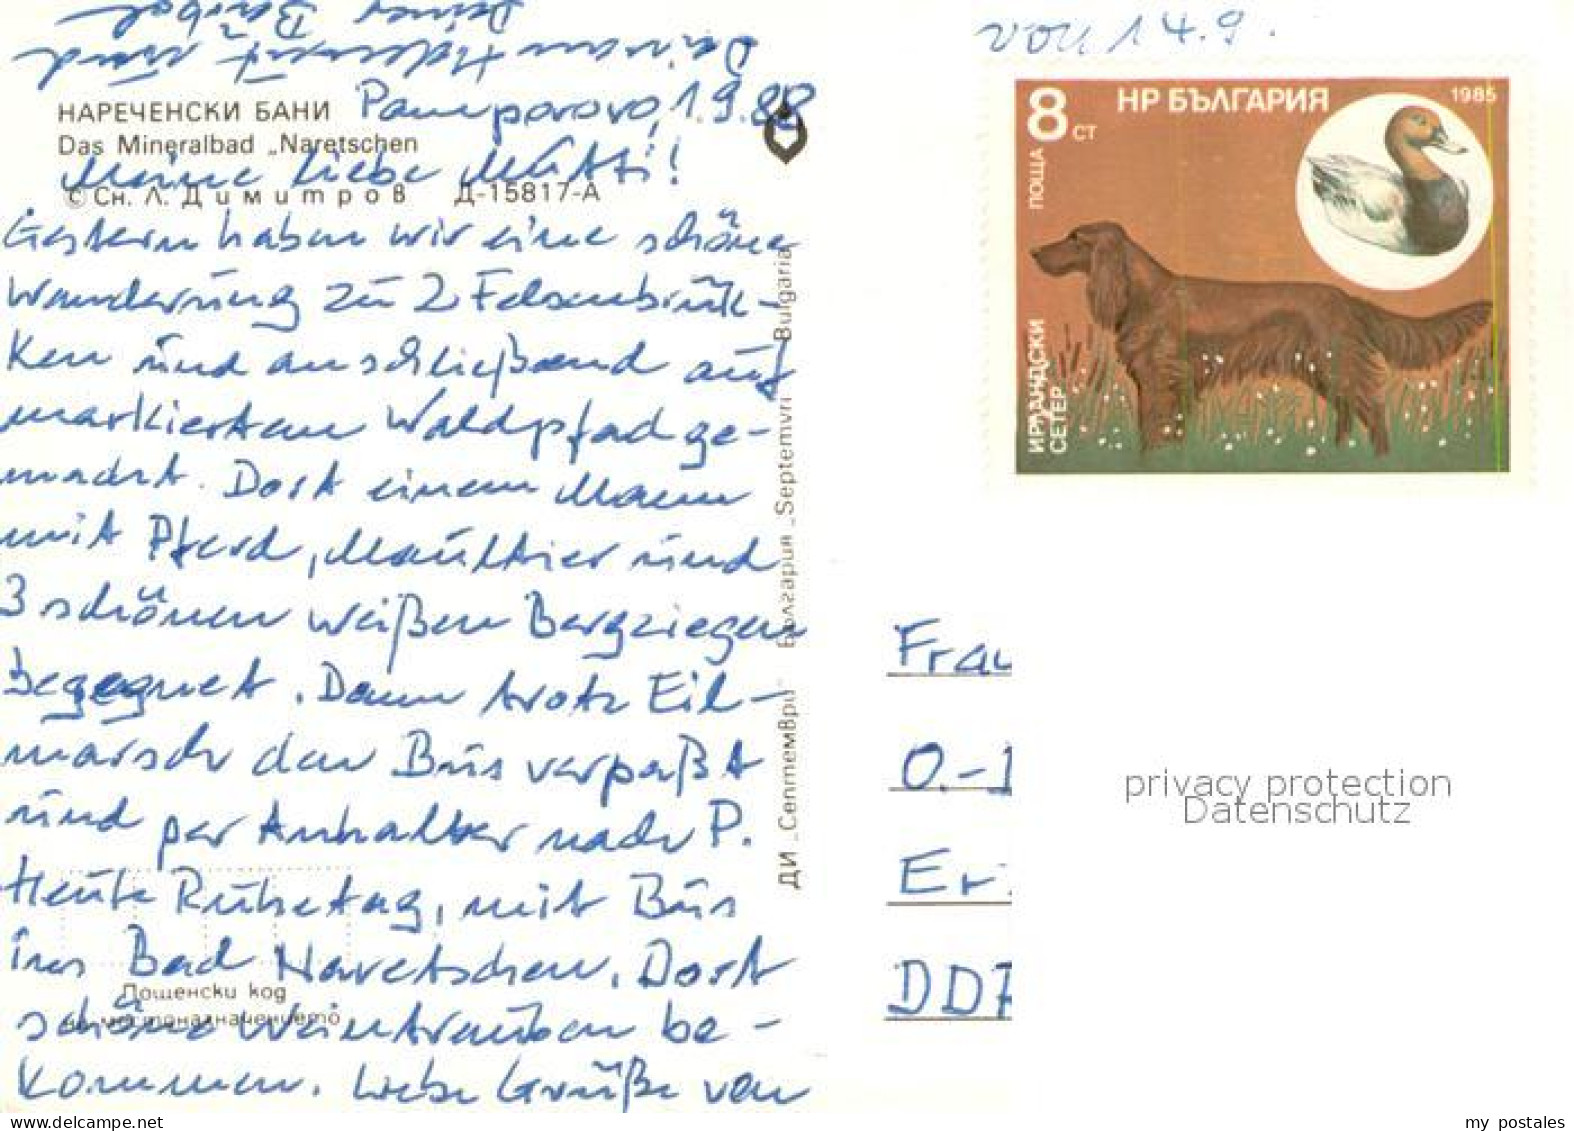 von 14.9.
НАРЕЧЕНСКИ БАНИ
Das Mineralbad „Naretschen
© Сн. Л. Димитров Д-15817-А
Pamporovo, 1.9.88
Meine liebe Mutti!
Gestern haben wir eine schöne
Wanderung zu 2 Felsenbrük-
ken und anschließend auf
markiertem Waldpfad ge-
macht. Dort einem Mann
mit Pferd, Maultier und
3 schönen weißen Bergziegen
begegnet. Dann trotz Eil-
marsch den Bus verpaßt
und per Anhalter nach P.
Heute Ruhetag, mit Bus
ins Bad Naretschen. Dort
schöne Weintrauben be-
kommen. Liebe Grüße von
Deinem Helmut und
Deiner Bärbel
Пощенски код
местоназначението
ДИ „Септември България „Septemvri Bulgaria
НР БЪЛГАРИЯ
1985
8 ст
ПОЩА
ИРЛАНДСКИ
СЕТЕР
Frau
O.-
Er
DD
privacy protection
Datenschutz
www.delcampe.net
my postales